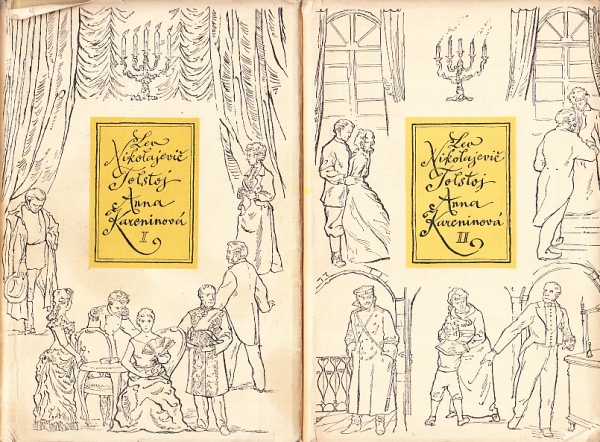 Lev
Nikolajevič
Tolstoj
Anna
Kareninová
I
Lev
Nikolajevič
Tolstoj
Anna
Kareninová
II